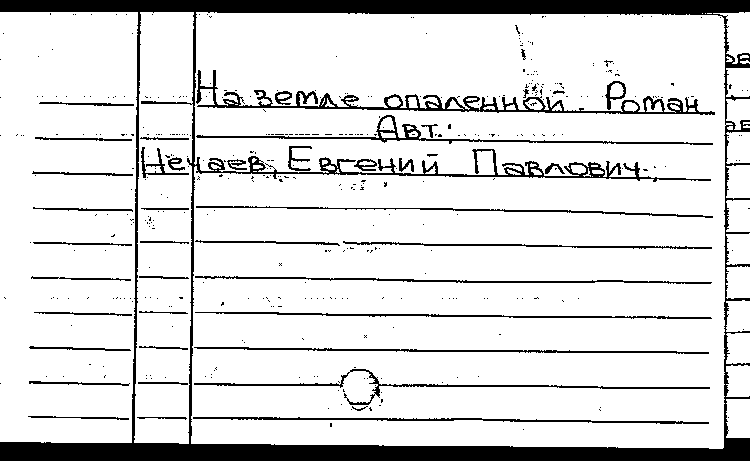 На земле опаленной. Роман
Авт.:
Нечаев, Евгений Павлович.